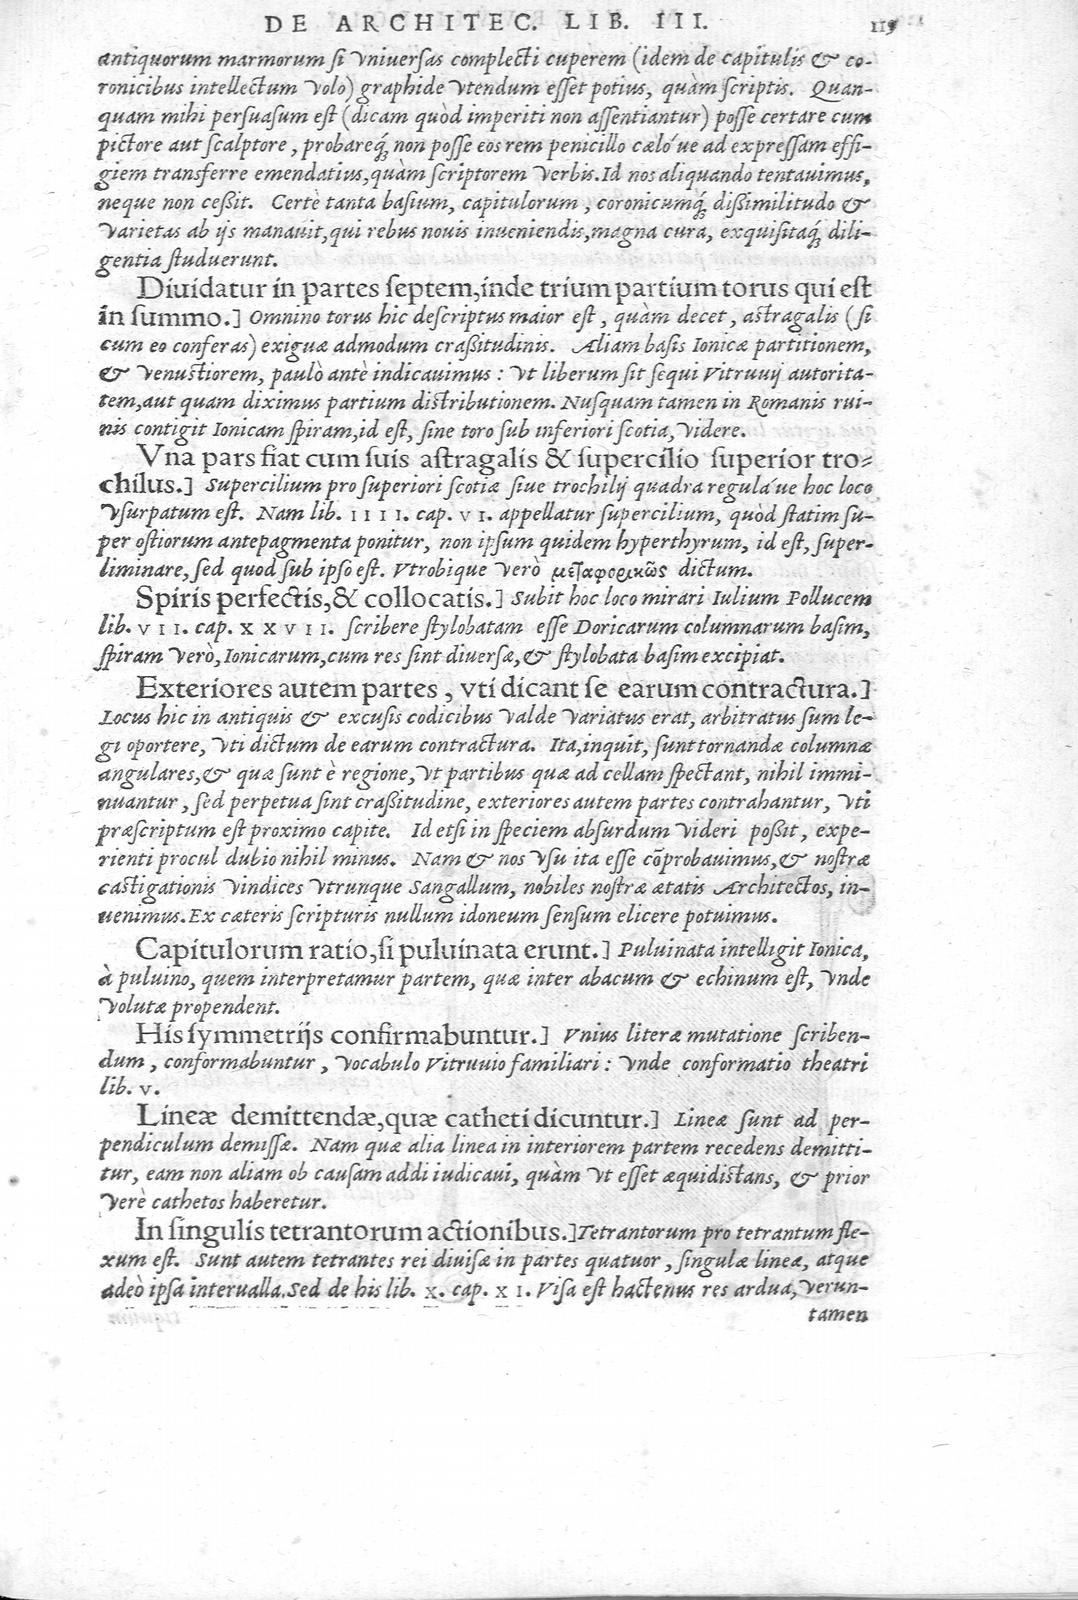 DE ARCHITEC. LIB. III. 119
antiquorum marmorum si vniuersas complecti cuperem (idem de capitulis & co-
ronicibus intellectum volo) graphide vtendum esset potius, quàm scriptis. Quan-
quam mihi persuasum est (dicam quòd imperiti non assentiantur) posse certare cum
pictore aut scalptore, probareq́; non posse eos rem penicillo cælóue ad expressam effi-
giem transferre emendatius, quàm scriptorem verbis. Id nos aliquando tentauimus,
neque non ceßit. Certè tanta basium, capitulorum, coronicumq́; dißimilitudo &
varietas ab ijs manauit, qui rebus nouis inueniendis, magna cura, exquisitaq́; dili-
gentia studuerunt.
Diuidatur in partes septem, inde trium partium torus qui est
in summo.] Omnino torus hic descriptus maior est, quàm decet, astragalis (si
cum eo conferas) exiguæ admodum craßitudinis. Aliam basis Ionicæ partitionem,
& venustiorem, paulò antè indicauimus: vt liberum sit sequi Vitruuij autorita-
tem, aut quam diximus partium distributionem. Nusquam tamen in Romanis rui-
nis contigit Ionicam spiram, id est, sine toro sub inferiori scotia, videre.
Vna pars fiat cum suis astragalis & supercilio superior tro-
chilus.] Supercilium pro superiori scotiæ siue trochilij quadra reguláue hoc loco
vsurpatum est. Nam lib. IIII. cap. VI. appellatur supercilium, quòd statim su-
per ostiorum antepagmenta ponitur, non ipsum quidem hyperthyrum, id est, super-
liminare, sed quod sub ipso est. Vtrobique verò μεταφορικῶς dictum.
Spiris perfectis, & collocatis.] Subit hoc loco mirari Iulium Pollucem
lib. VII. cap. XXVII. scribere stylobatam esse Doricarum columnarum basim,
spiram verò, Ionicarum, cum res sint diuersæ, & stylobata basim excipiat.
Exteriores autem partes, vti dicant se earum contractura.]
Locus hic in antiquis & excusis codicibus valde variatus erat, arbitratus sum le-
gi oportere, vti dictum de earum contractura. Ita, inquit, sunt tornandæ columnæ
angulares, & quæ sunt è regione, vt partibus quæ ad cellam spectant, nihil immi-
nuantur, sed perpetua sint craßitudine, exteriores autem partes contrahantur, vti
præscriptum est proximo capite. Id etsi in speciem absurdum videri poßit, expe-
rienti procul dubio nihil minus. Nam & nos vsu ita esse cõprobauimus, & nostræ
castigationis vindices vtrunque Sangallum, nobiles nostræ ætatis Architectos, in-
uenimus. Ex cæteris scripturis nullum idoneum sensum elicere potuimus.
Capitulorum ratio, si puluinata erunt.] Puluinata intelligit Ionica,
à puluino, quem interpretamur partem, quæ inter abacum & echinum est, vnde
volutæ propendent.
His symmetrijs confirmabuntur.] Vnius literæ mutatione scriben-
dum, conformabuntur, vocabulo Vitruuio familiari: vnde conformatio theatri
lib. V.
Lineæ demittendæ, quæ catheti dicuntur.] Lineæ sunt ad per-
pendiculum demissæ. Nam quæ alia linea in interiorem partem recedens demitti-
tur, eam non aliam ob causam addi iudicaui, quàm vt esset æquidistans, & prior
verè cathetos haberetur.
In singulis tetrantorum actionibus.] Tetrantorum pro tetrantum fle-
xum est. Sunt autem tetrantes rei diuisæ in partes quatuor, singulæ lineæ, atque
adeò ipsa interualla. Sed de his lib. X. cap. XI. Visa est hactenus res ardua, verun-
tamen